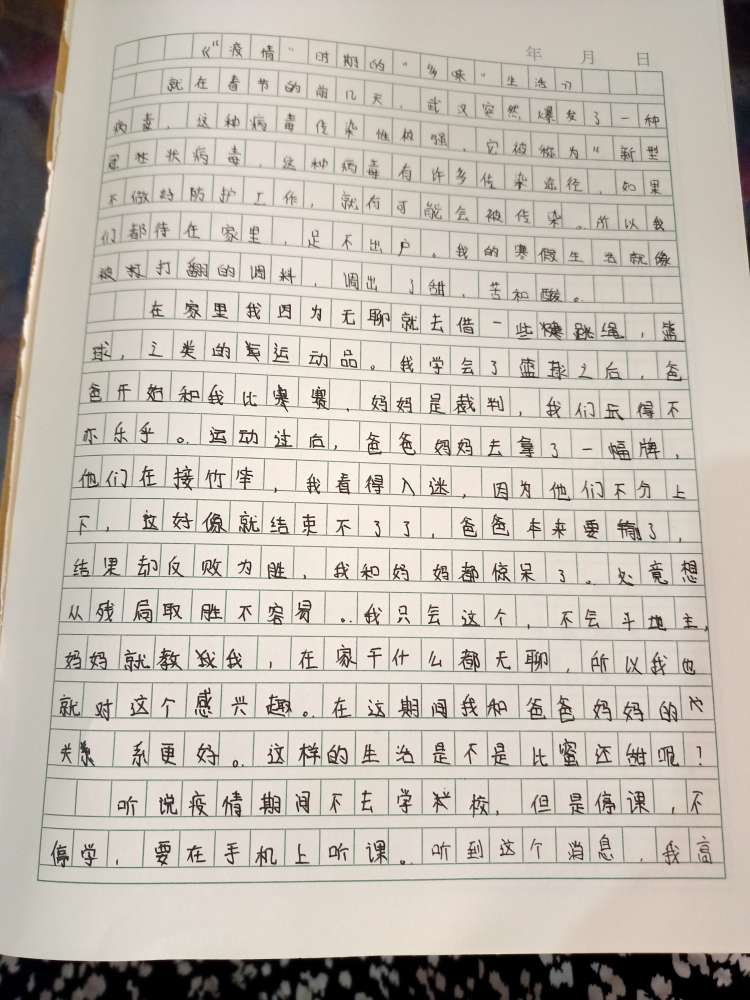 年 月 日
《“疫情”时期的“多味”生活》
就在春节的前几天，武汉突然爆发了一种
病毒，这种病毒传染性极强，它被称为“新型
冠状状病毒，这种病毒有许多传染途径，如果
不做好防护工作，就有可能会被传染。所以我
们都待在家里，足不出户。我的寒假生活就像
被打翻的调料，调出了甜，苦和酸。
在家里我因为无聊就去借一些跳绳，篮
球，之类的运动品。我学会了篮球之后，爸
爸开始和我比赛，妈妈是裁判，我们玩得不
亦乐乎。运动过后，爸爸妈妈去拿了一幅牌，
他们在接竹竿，我看得入迷，因为他们不分上
下，这好像就结束不了了，爸爸本来要输了，
结果却反败为胜，我和妈妈都惊呆了。必竟想
从残局取胜不容易。我只会这个，不会斗地主，
妈妈就教我，在家干什么都无聊，所以我也
就对这个感兴趣。在这期间我和爸爸妈妈的
关系更好。这样的生活是不是比蜜还甜呢？
听说疫情期间不去学校，但是停课，不
停学，要在手机上听课。听到这个消息，我高